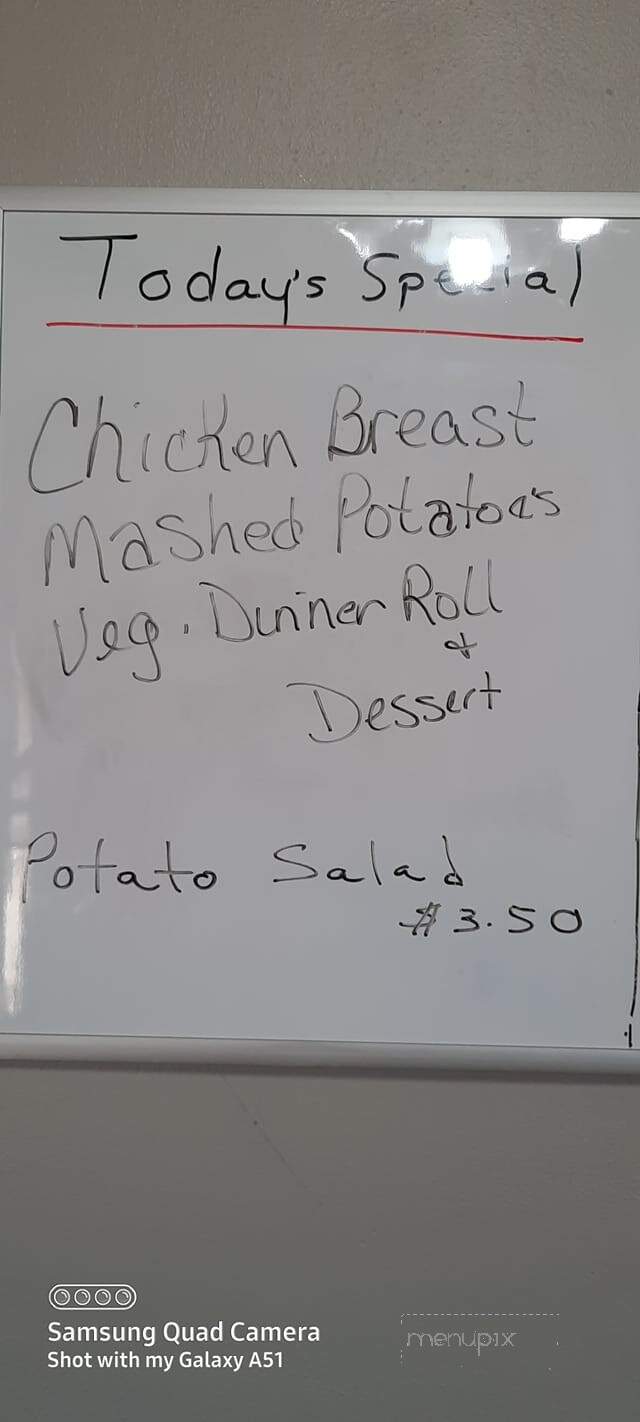 Today's Special
Chicken Breast
Mashed Potatoe's
Veg. Dinner Roll
&
Dessert
Potato Salad
$3.50
Samsung Quad Camera
Shot with my Galaxy A51
menupix